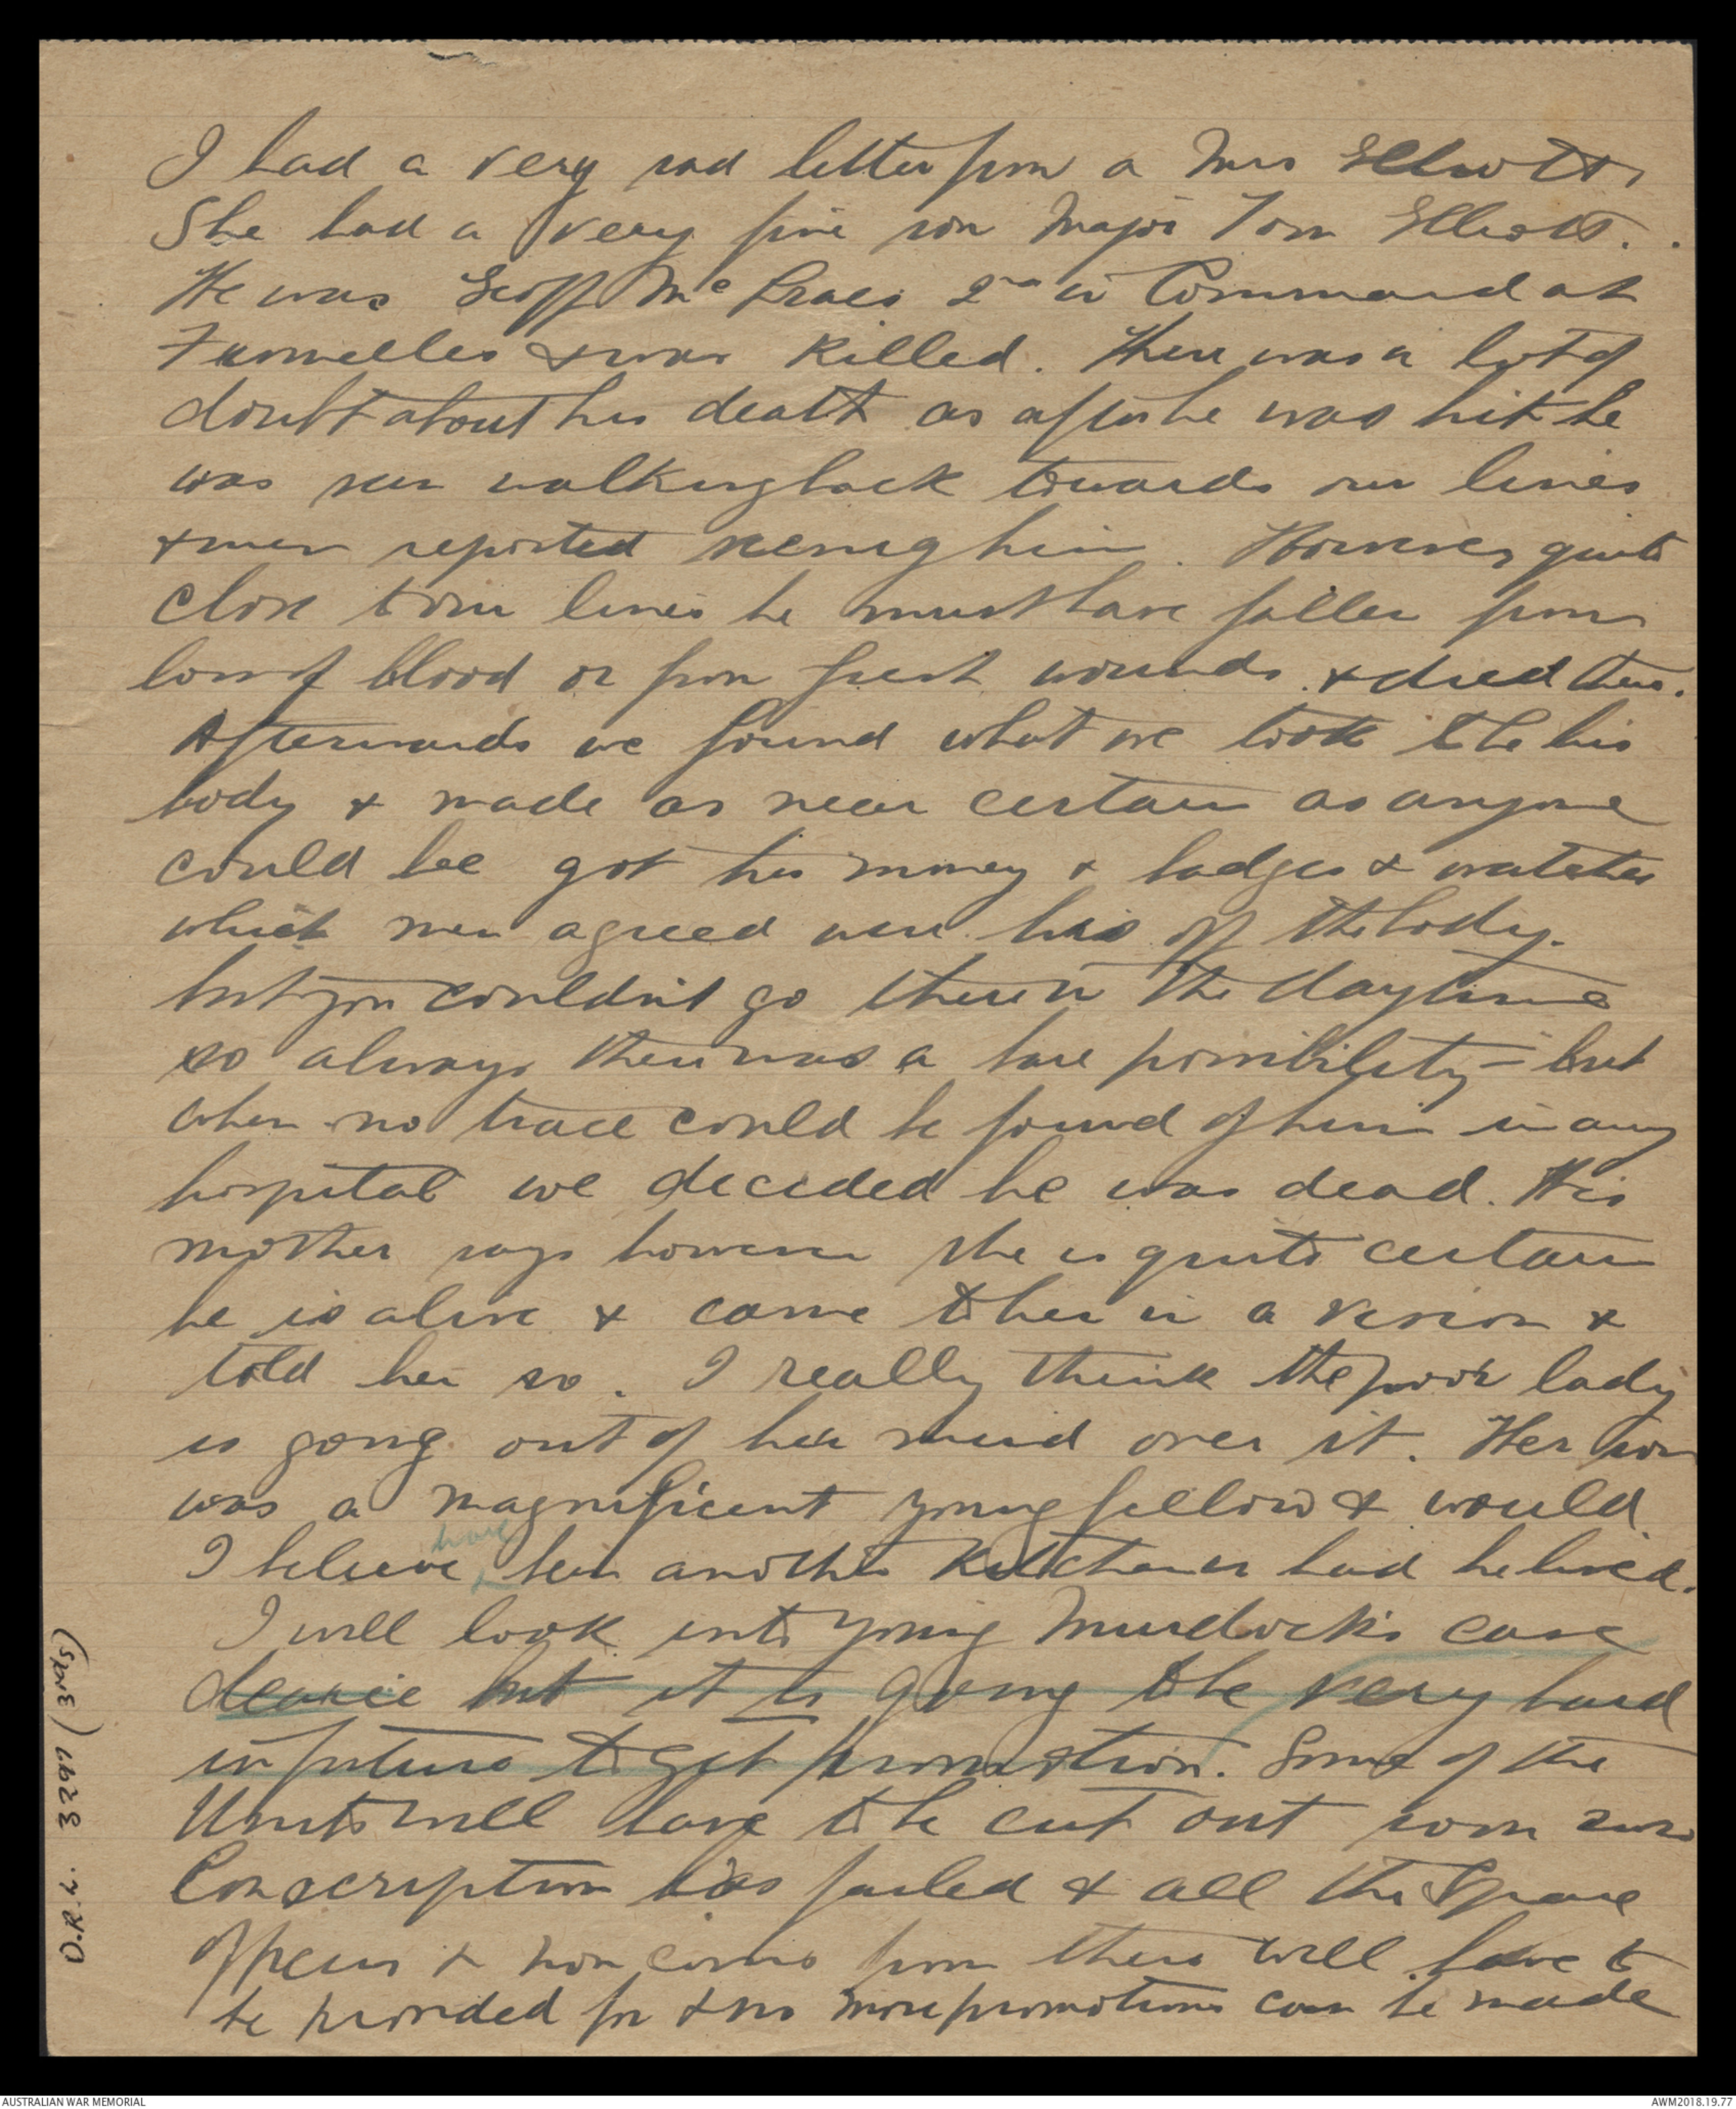 I had a very sad letter from a Mrs Elliott,
She had a very fine son Major Tom Elliott.
He was Geoff McCraes 2nd in Command at
Fromelles & was killed. There was a lot of
doubt about his death as after he was hit he
was seen walking back towards our lines
& men reported seeing him. However quite
close to our lines he must have fallen from
loss of blood or from fresh wounds & died there.
Afterwards we found what we took to be his
body & made as near certain as anyone
could be got his money & badges & watches
which men agreed were his off the body.
but you couldn't go there in the daytime
so always there was a bare possibility – but
when no trace could be found of him in any
hospital we decided he was dead. His
mother says however she is quite certain
he is alive & came to her in a vision &
told her so. I really think the poor lady
is going out of her mind over it. Her son
was a magnificent young fellow & would
I believe have been another Kitchener had he lived.
I will look into young Murdock's case
dearie but it is going to be very hard
in future to get promotion. Some of the
Units will have to be cut out soon since
Conscription has failed & all the spare
officers & non coms from these will have to
be provided for & no more promotions can be made
(3rks) / 3297 .
AUSTRALIAN WAR MEMORIAL
AWM2018.19.77